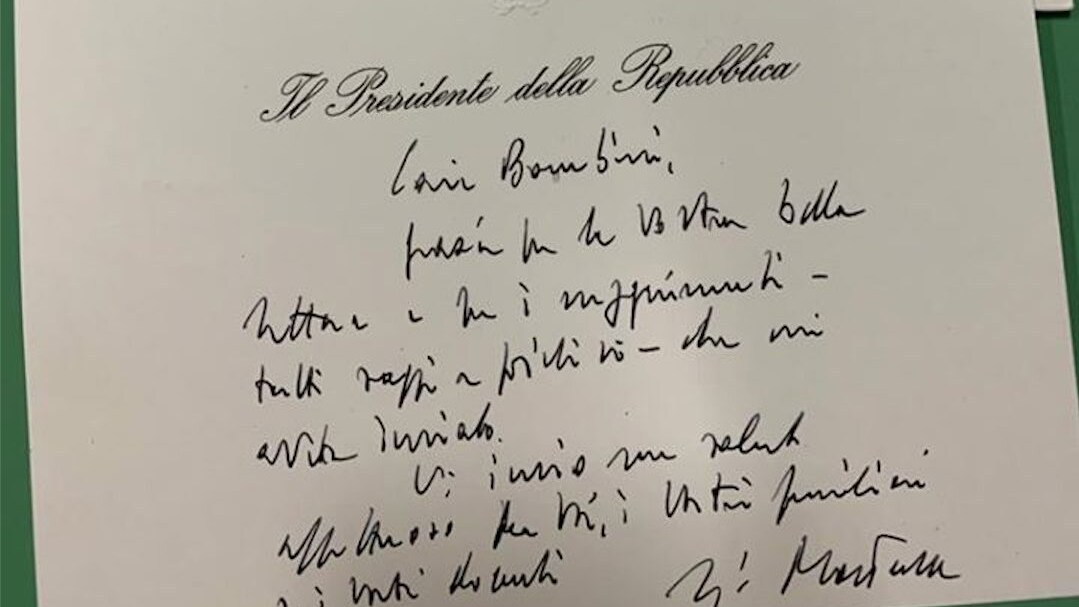 Il Presidente della Repubblica
Cari Bambini,
grazie per la Vostra bella
lettera e per i suggerimenti -
tutti saggi e positivi - che mi
avete inviato.
Vi invio un saluto
affettuoso per Voi, i Vostri familiari
e i Vostri docenti
Mattarella